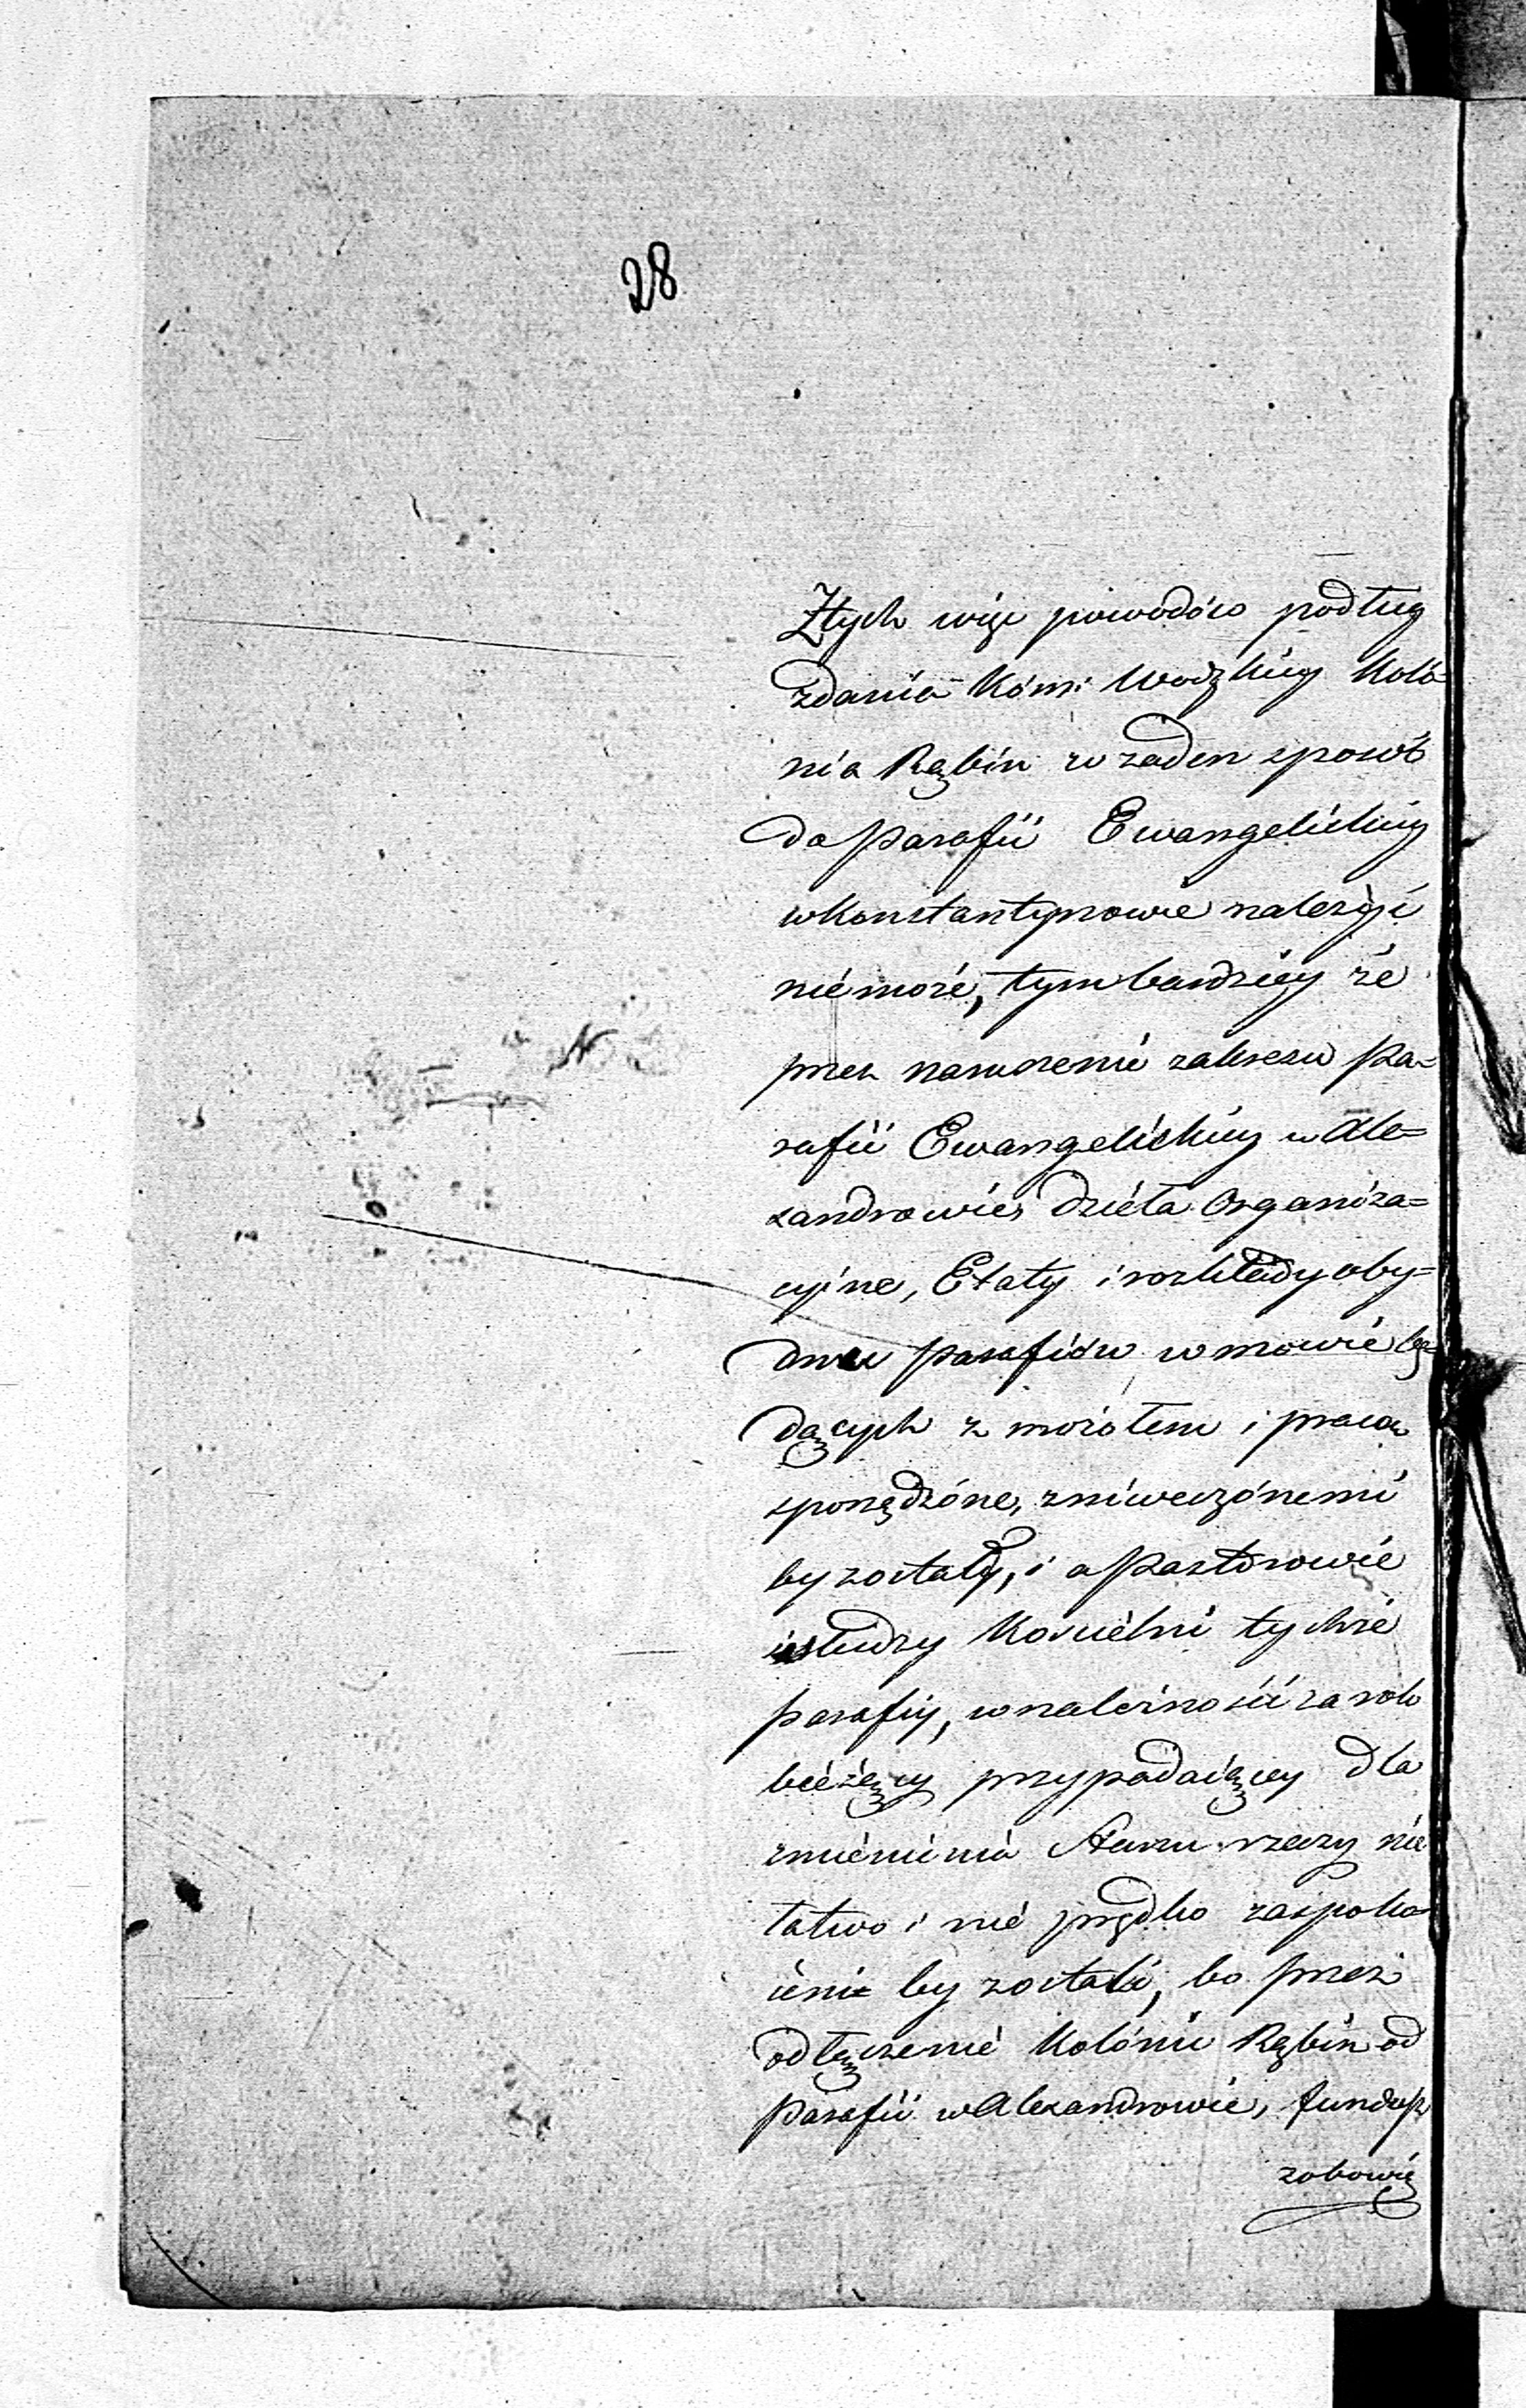 28
Ztych więc powodów podług
zdania Kom: Wodzkiey Kolo=
nia Rąbin w żaden sposób
do parafii Ewangelickiey
w Konstantynowie należyć
nie może, tym bardziey że
przez naruszenie zakresu Pa=
rafii Ewangelickiey w Ale=
xandrowie, dzieła Organiza=
cyine, Etaty i rozkłady oby=
dwu parafiów w mowie bę=
dących z mozołem i pracą
sporządzone, zniweczonemi
by zostały, i a Pastorowie
i słudzy Kościelni tychże
parafiy, w należności za rok
bieżący przypadaiącey dla
zmienienia stanu rzeczy nie
łatwo i nie prędko zaspoko=
ieni by zostali, bo przez
odłączenie Kolonii Rąbin od
Parafii w Alexandrowie, fundusz
zobowią